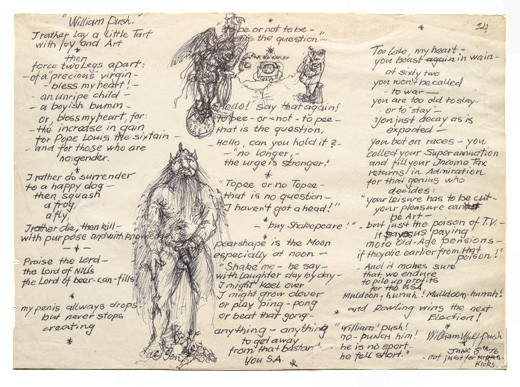 "William Push.
I rather lay a little Tart
with joy and Art
then
force two legs apart:
- of a precious virgin -
- bless my heart! -
an unripe child -
- a boyish bumm -
or, bless my heart, for
- the increase in gain
for Pope Louis the sixtain -
- and for those who are
no gender.
I rather do surrender
to a happy dog -
then squash
a frog
a fly,
I rather die, then kill -
with purpose
Praise the Lord -
the Lord of Nills
the Lord of beer-can-fills!
my penis allways drops
but never stops
creating
To be or not to be -
is the question -
Hello! Say that again!
to pee - or - not - to pee -
that is the question,
Hello, can you hold it? -
"no longer, -
the urge is stronger!
To pee or no Topee -
that is no question -
I haven't got a head!"
buy Shakespeare!
pearshape is the Moon
especially at noon -
- Shake me - he say -
with laughter day by day -
I might keel over
I might grow clover
or play ping - pong
or beat that gong -
anything - anything
to get away
from that bastar
You S.A.
34
Too Late, my heart, -
you boast again in vain -
at sixty two
you won't be called
to war -
you are too old to slay -
or to "stay -
you just decay as is
expected -
You bet on races - you
collect your Superannuation
and fill your Income Tax
returns! in Admiration
for that genius who
decides:
"your leisure has to be cut -
your pleasure can
be Art -
- but just the poison of T.V.
it paying
more Old-Age pensions -
if they die earlier from that
poison!"
And it makes sure
that we endure
to pile up profits
for the USA
Muldoon, hurrah! Mulldoon, hurrah!
and Rowling wins the next
Election!
"William! push!
no - punch him!
he is no sport -
he fell short."
William Wyll-push
JUNE 5th 76
- not just for
Kicks.